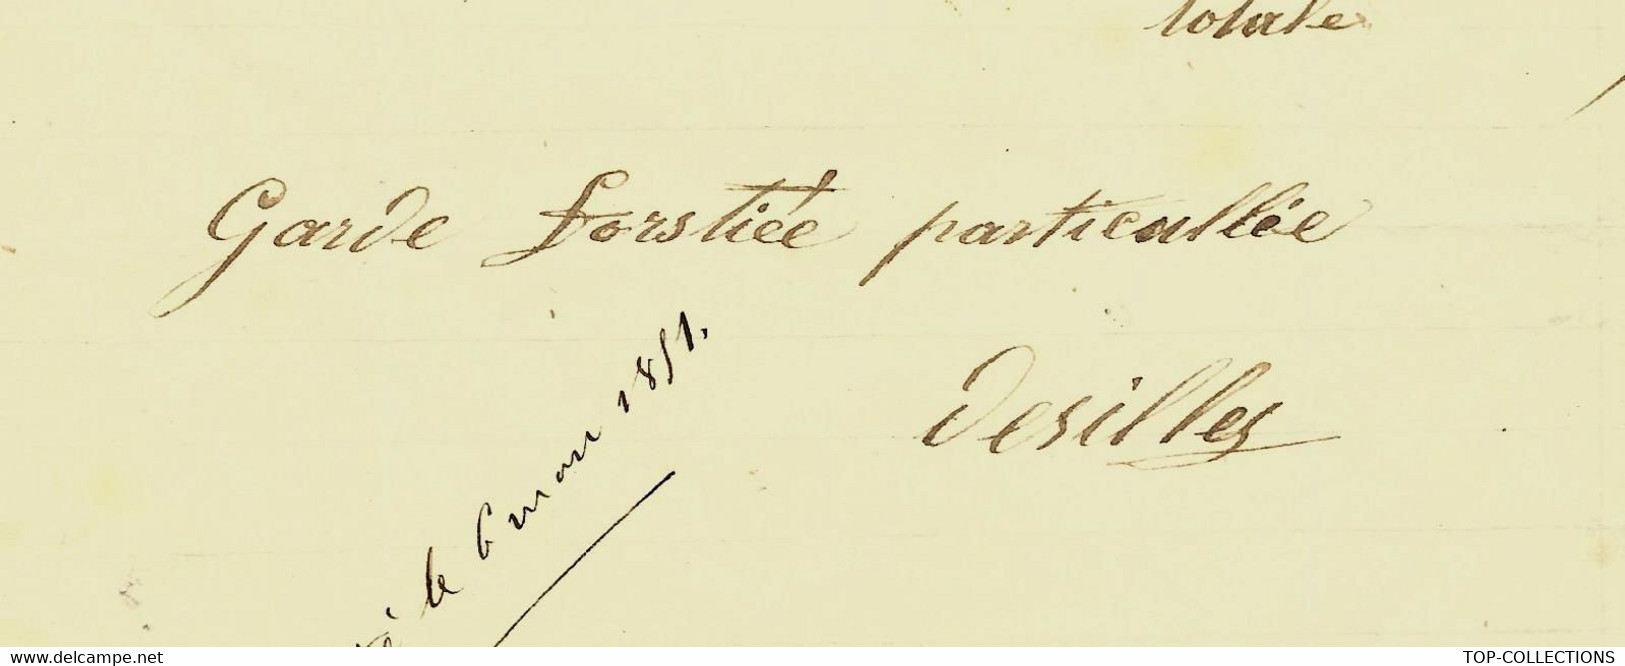 totale
Garde Forstiée particallée
Desilles
le 6 mars 1851.
www.delcampe.net
TOP-COLLECTIONS